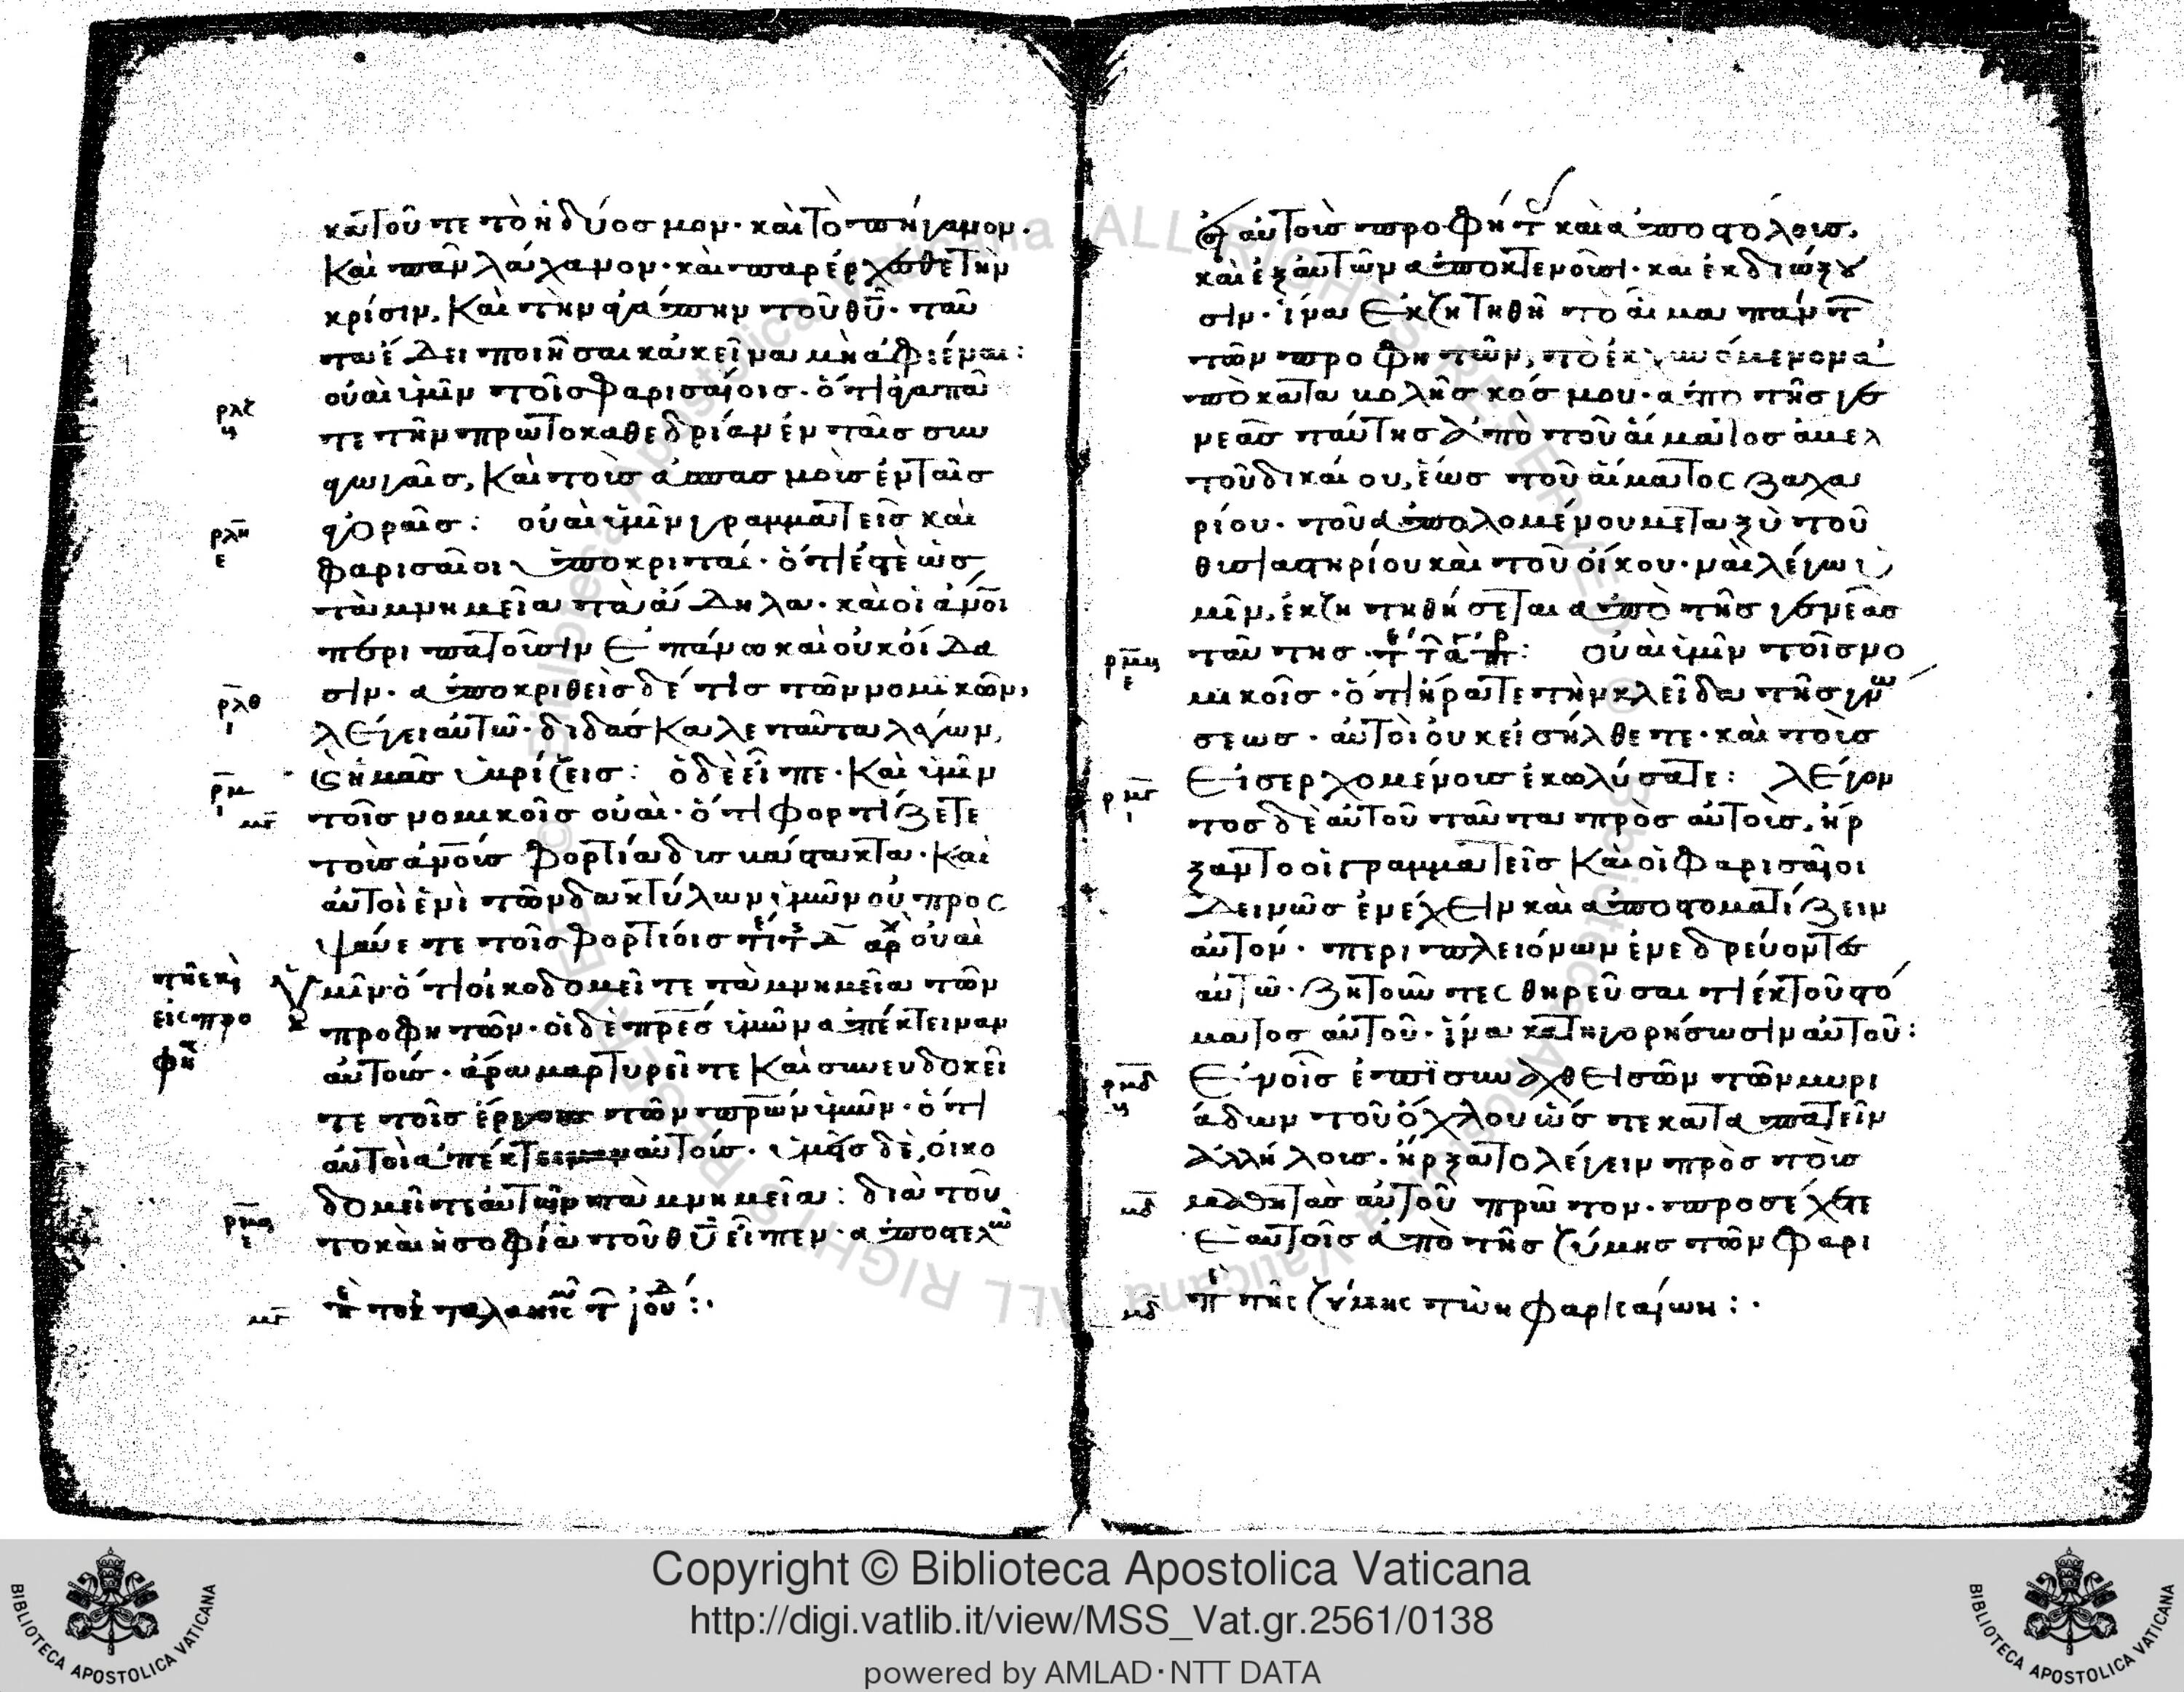 κατοῦτε τὸ ἡδύοσμον· καὶ τὸ πήγανον·
Καὶ πᾶν λάχανον· καὶ παρέρχεσθε τὴν
κρίσιν, Καὶ τὴν ἀγάπην τοῦ θῡ· ταῦ
τα ἔδει ποιῆσαι κἀκεῖνα μὴ ἀφιέναι:
ρλζ οὐαὶ ὑμῖν τοῖς φαρισαίοις· ὅτι ἀγαπᾶ
τε τὴν πρωτοκαθεδρίαν ἐν ταῖς συν
αγωγαῖς, Καὶ τοὺς ἀσπασμοὺς ἐν ταῖς
ρλη ε ἀγοραῖς: οὐαὶ ὑμῖν γραμματεῖς καὶ
φαρισαῖοι ὑποκριταί· ὅτι ἐστὲ ὡς
τὰ μνημεῖα τὰ ἄδηλα· καὶ οἱ ἀν̅οι
περιπατοῦσιν ἐπάνω καὶ οὐκ οἴδα
ρλθ ι σιν· ἀποκριθεὶς δέ τις τῶν νομικῶν,
λέγει αὐτῶ· διδάσκαλε ταῦτα λέγων,
ρμ ι καὶ ἡμᾶς ὑβρίζεις: ὁ δὲ εἶπε· Καὶ ὑμῖν
μγ τοῖς νομικοῖς οὐαὶ· ὅτι φορτίζετε
τοὺς ἀν̅ους φορτία δυσβάστακτα· Καὶ
αὐτοὶ ἑνὶ τῶν δακτύλων ὑμῶν οὐ προσ
ψαύετε τοῖς φορτίοις αρχ οὐαὶ
ὑμῖν ὅτι οἰκοδομεῖτε τὰ μνημεῖα τῶν
προφητῶν· οἱ δὲ πρ̅ες ὑμῶν ἀπέκτειναν
αὐτούς· ἄρα μαρτυρεῖτε Καὶ συνευδοκεῖ
τε τοῖς ἔργοις τῶν πρ̅ων ὑμῶν· ὅτι
αὐτοὶ ἀπέκτειναν αὐτούς· ὑμεῖς δὲ, οἰκο
δομεῖτε αὐτῶν τὰ μνημεῖα: διὰ τοῦ
ρμα ε το καὶ ἡ σοφία τοῦ θῡ εἶπεν· ἀποστελῶ
εἰς αὐτοὺς προφήτ καὶ ἀποστόλους,
καὶ ἐξ αὐτῶν ἀποκτενοῦσι· καὶ ἐκδιώξου
σιν· ἵνα ἐκζητηθῆ τὸ αἷμα πάντ
τῶν προφητῶν, τὸ ἐκχυνόμενον ἀ
πὸ καταβολῆς κόσμου· ἀπὸ τῆς γε
νεᾶς ταύτης ἀπὸ τοῦ αἵματος ἄβελ
τοῦ δικαίου, ἕως τοῦ αἵματος ζαχα
ρίου· τοῦ ἀπολομένου μεταξὺ τοῦ
θυσιαστηρίου καὶ τοῦ οἴκου· ναὶ λέγω ὑ
μῖν, ἐκζητηθήσεται ἀπὸ τῆς γενεᾶς
ρμβ ε ταύτης· οὐαὶ ὑμῖν τοῖς νο
μικοῖς· ὅτι ἤρατε τὴν κλεῖδα τῆς γνώ
σεως· αὐτοὶ οὐκ εἰσήλθετε· καὶ τοὺς
ρμγ ι εἰσερχομένους ἐκωλύσατε: λέγον
τος δὲ αὐτοῦ ταῦτα πρὸς αὐτούς, ἤρ
ξαντο οἱ γραμματεῖς Καὶ οἱ φαρισαῖοι
δεινῶς ἐνέχειν καὶ ἀποστοματίζειν
αὐτόν· περὶ πλειόνων ἐνεδρεύοντες
αὐτῶ· ζητοῦντες θηρεῦσαι τι ἐκ τοῦ στό
ματος αὐτοῦ· ἵνα κατηγορήσωσιν αὐτοῦ:
ρμδ ἐν οἷς ἐπισυναχθεισῶν τῶν μυρι
άδων τοῦ ὄχλου ὥστε καταπατεῖν
ἀλλήλους· ἤρξατο λέγειν πρὸς τοὺς
μδ μαθητὰς αὐτοῦ πρῶτον· προσέχετε
ἑαυτοῖς ἀπὸ τῆς ζύμης τῶν φαρι
μδ τῆς ζύμης τῶν φαρισαίων:·